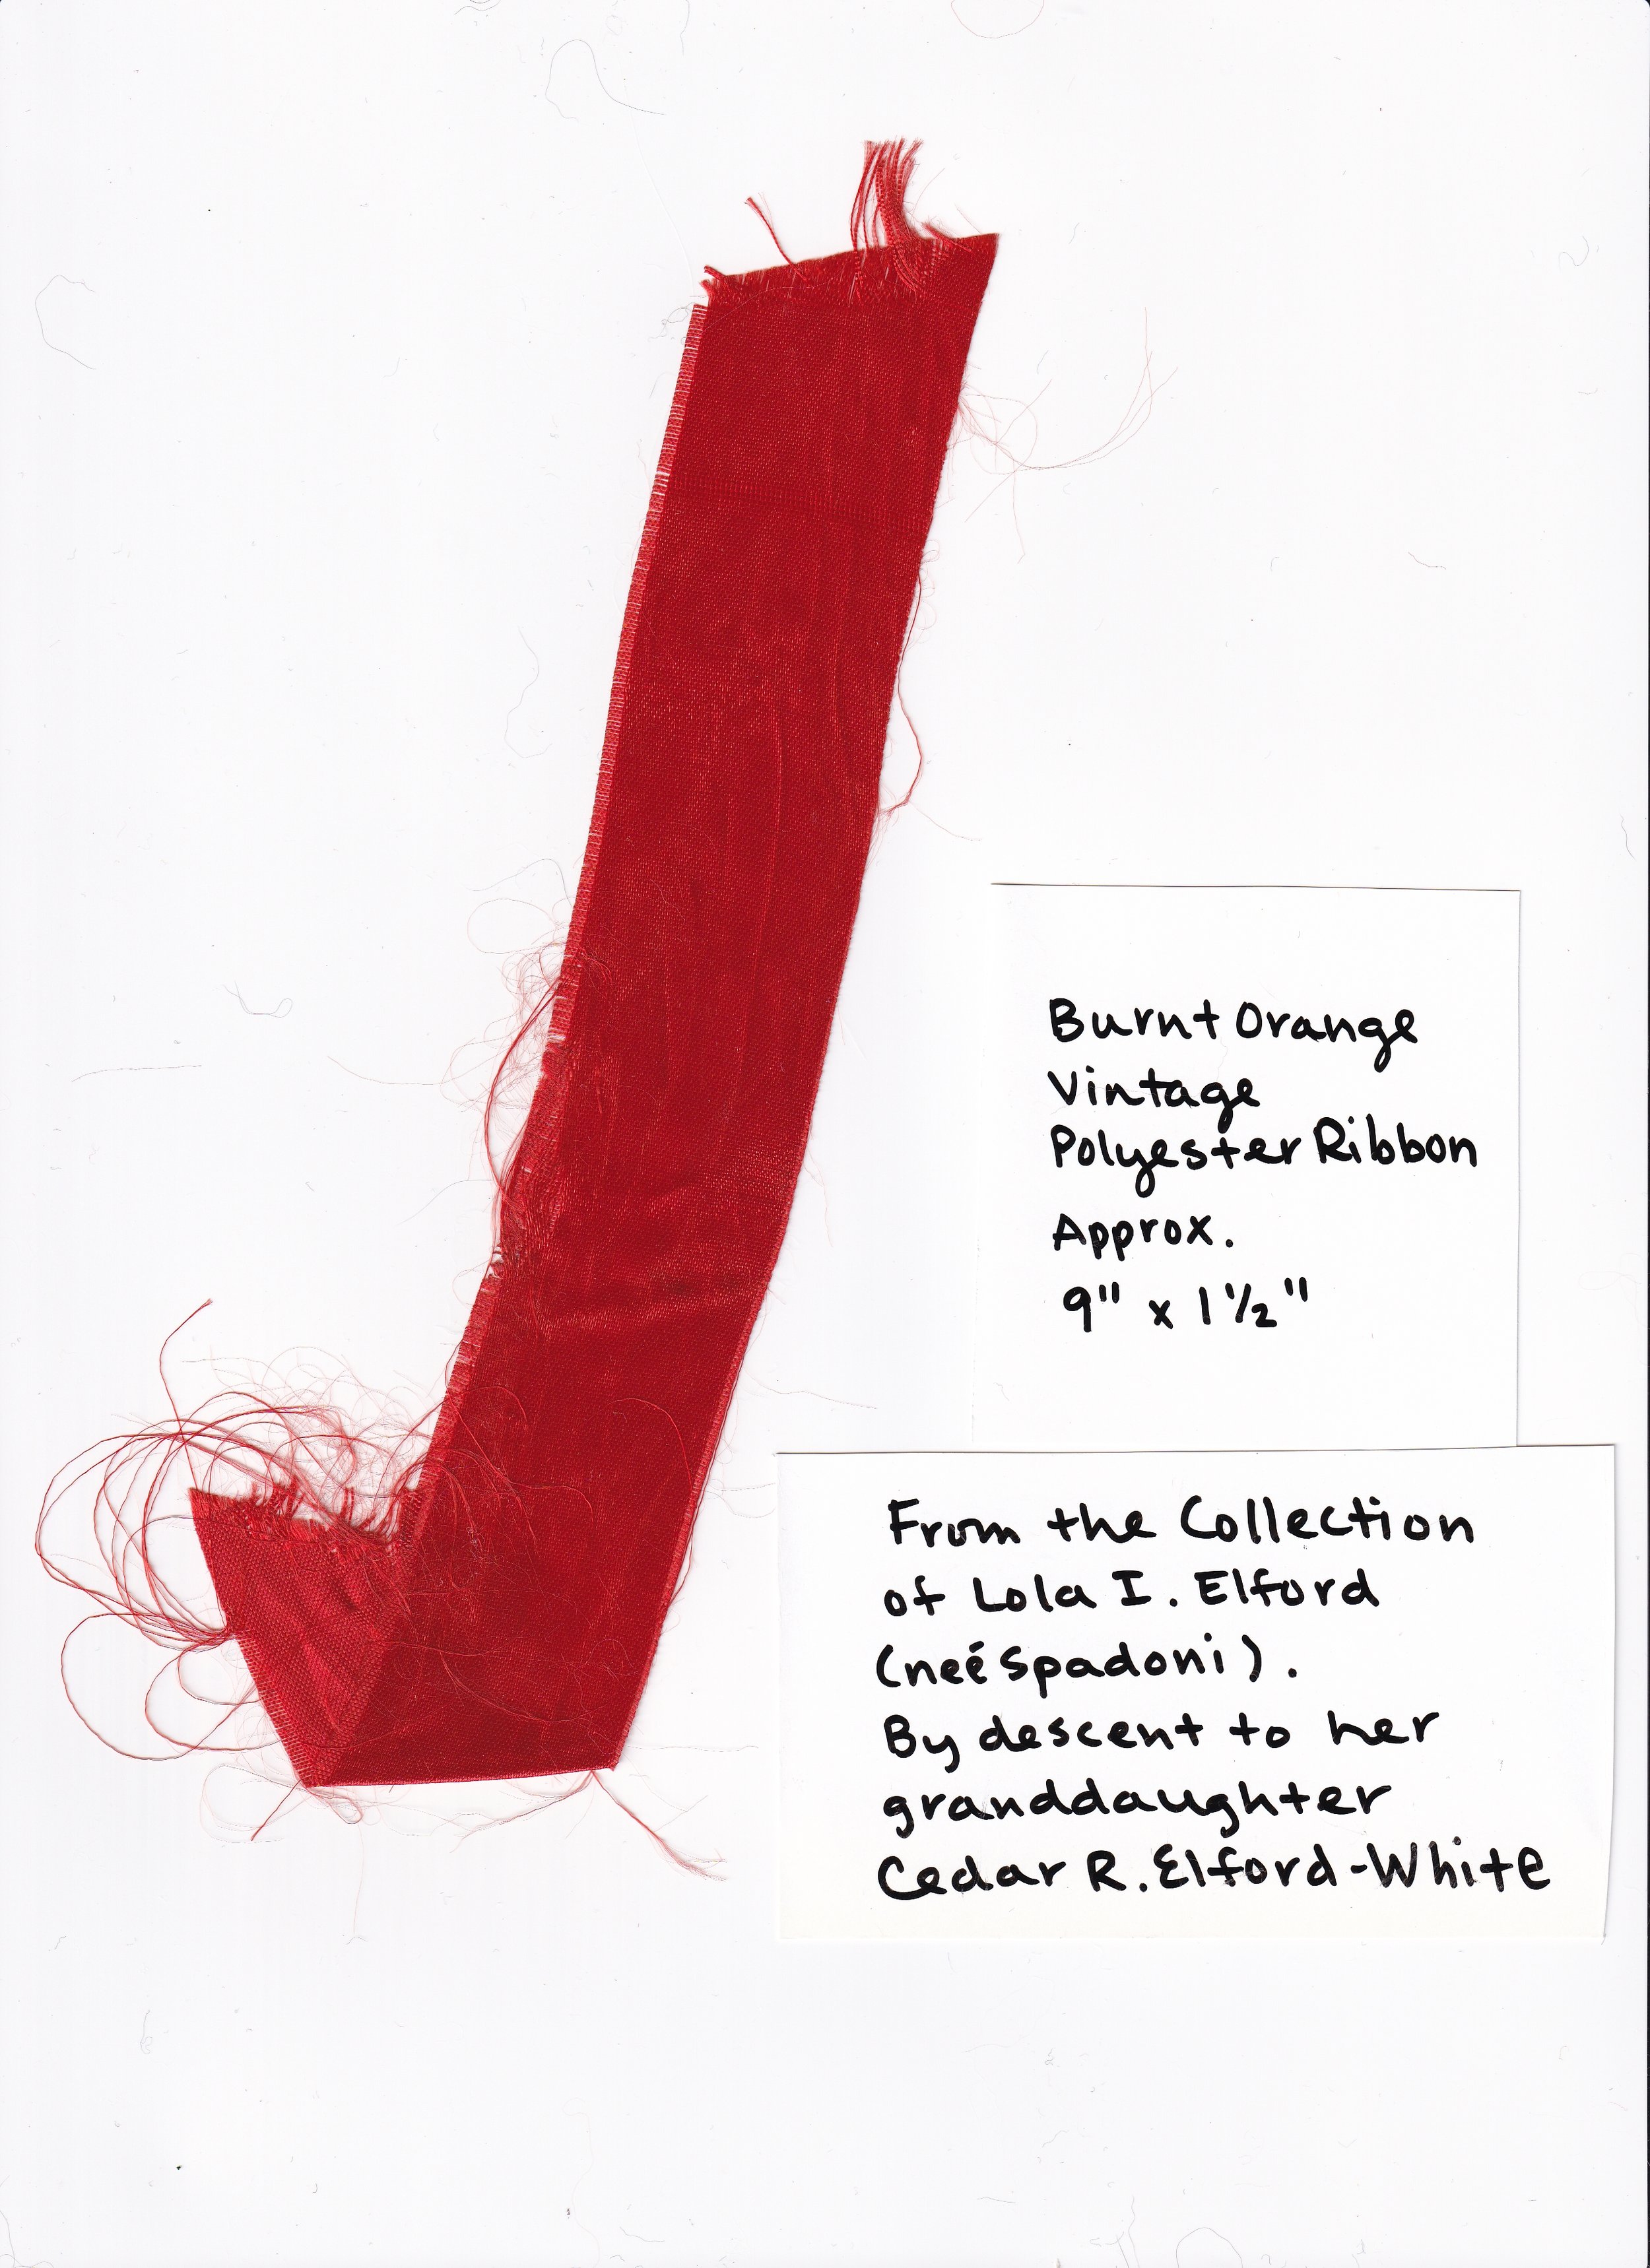 Burnt Orange
Vintage
Polyester Ribbon
Approx.
9" x 1 1/2"
From the Collection
of Lola I. Elford
(neé Spadoni).
By descent to her
granddaughter
Cedar R. Elford-White